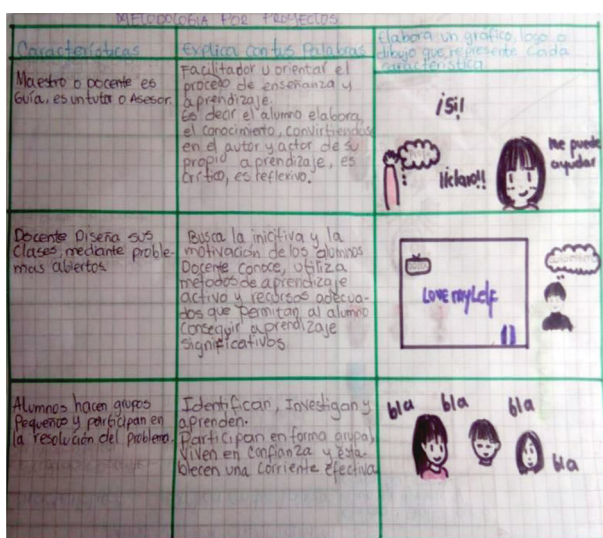 METODOLOGÍA POR PROYECTOS.
Características
Explica con tus Palabras
Elabora un gráfico, logo o
dibujo que represente cada
característica.
Maestro o Docente es
Guía, es un tutor o Asesor.
Facilitador u orientar el
proceso de enseñanza y
aprendizaje.
Es decir el alumno elabora
el conocimiento, convirtiendose
en el autor y actor de su
propio aprendizaje, es
crítico, es reflexivo.
¡Si!
Me puede
ayudar
¡¡claro!!
Docente Diseña sus
Clases, mediante proble-
mas abiertos
Busca la inicitiva y la
motivación de los alumnos
Docente conoce, utiliza
metodos de aprendizaje
activo y recursos adecua-
dos que permitan al alumno
conseguir aprendizaje
significativos
LOVE myself
Alumnos hacen grupos
Pequeños y participan en
la resolución del problema.
Identifican, Investigan y
aprenden.
Participan en forma grupal,
viven en confianza y esta-
blecen una corriente efectiva
bla bla bla
bla